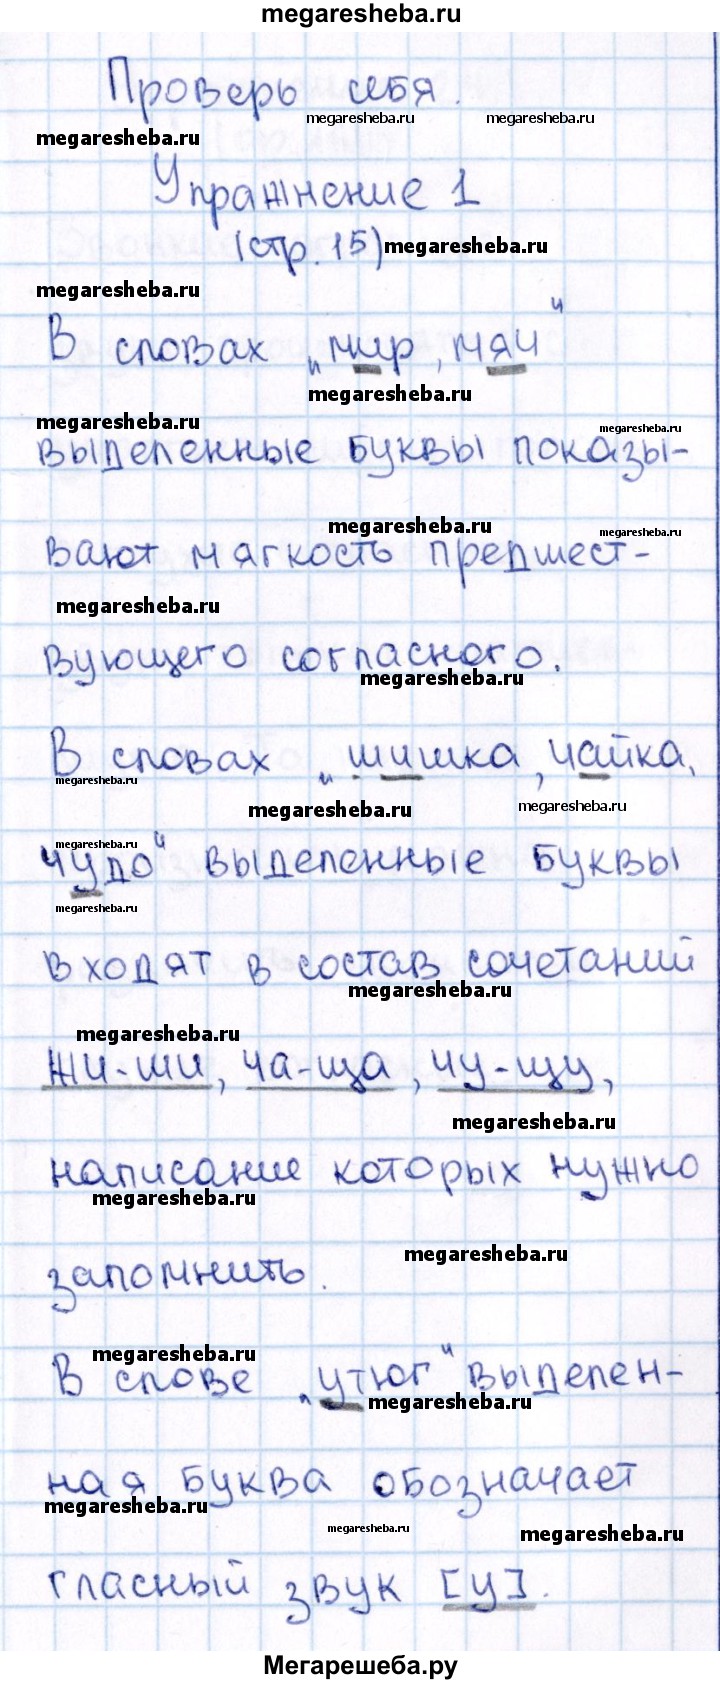 megaresheba.ru
Проверь себя.
megaresheba.ru megaresheba.ru megaresheba.ru
Упражнение 1
(стр. 15) megaresheba.ru
megaresheba.ru
В словах „мир, мяч“
megaresheba.ru
megaresheba.ru megaresheba.ru
выделенные буквы показы-
megaresheba.ru megaresheba.ru
вают мягкость предшест-
megaresheba.ru
вующего согласного.
megaresheba.ru
В словах „шишка, чайка,
megaresheba.ru
megaresheba.ru megaresheba.ru
megaresheba.ru
чудо“ выделенные буквы
megaresheba.ru
входят в состав сочетаний
megaresheba.ru
megaresheba.ru
жи-ши, ча-ща, чу-щу,
megaresheba.ru
написание которых нужно
megaresheba.ru
megaresheba.ru
запомнить.
megaresheba.ru
В слове „утюг“ выделен-
megaresheba.ru
ная буква обозначает
megaresheba.ru
megaresheba.ru megaresheba.ru
гласный звук [у].
Мегарешеба.ру